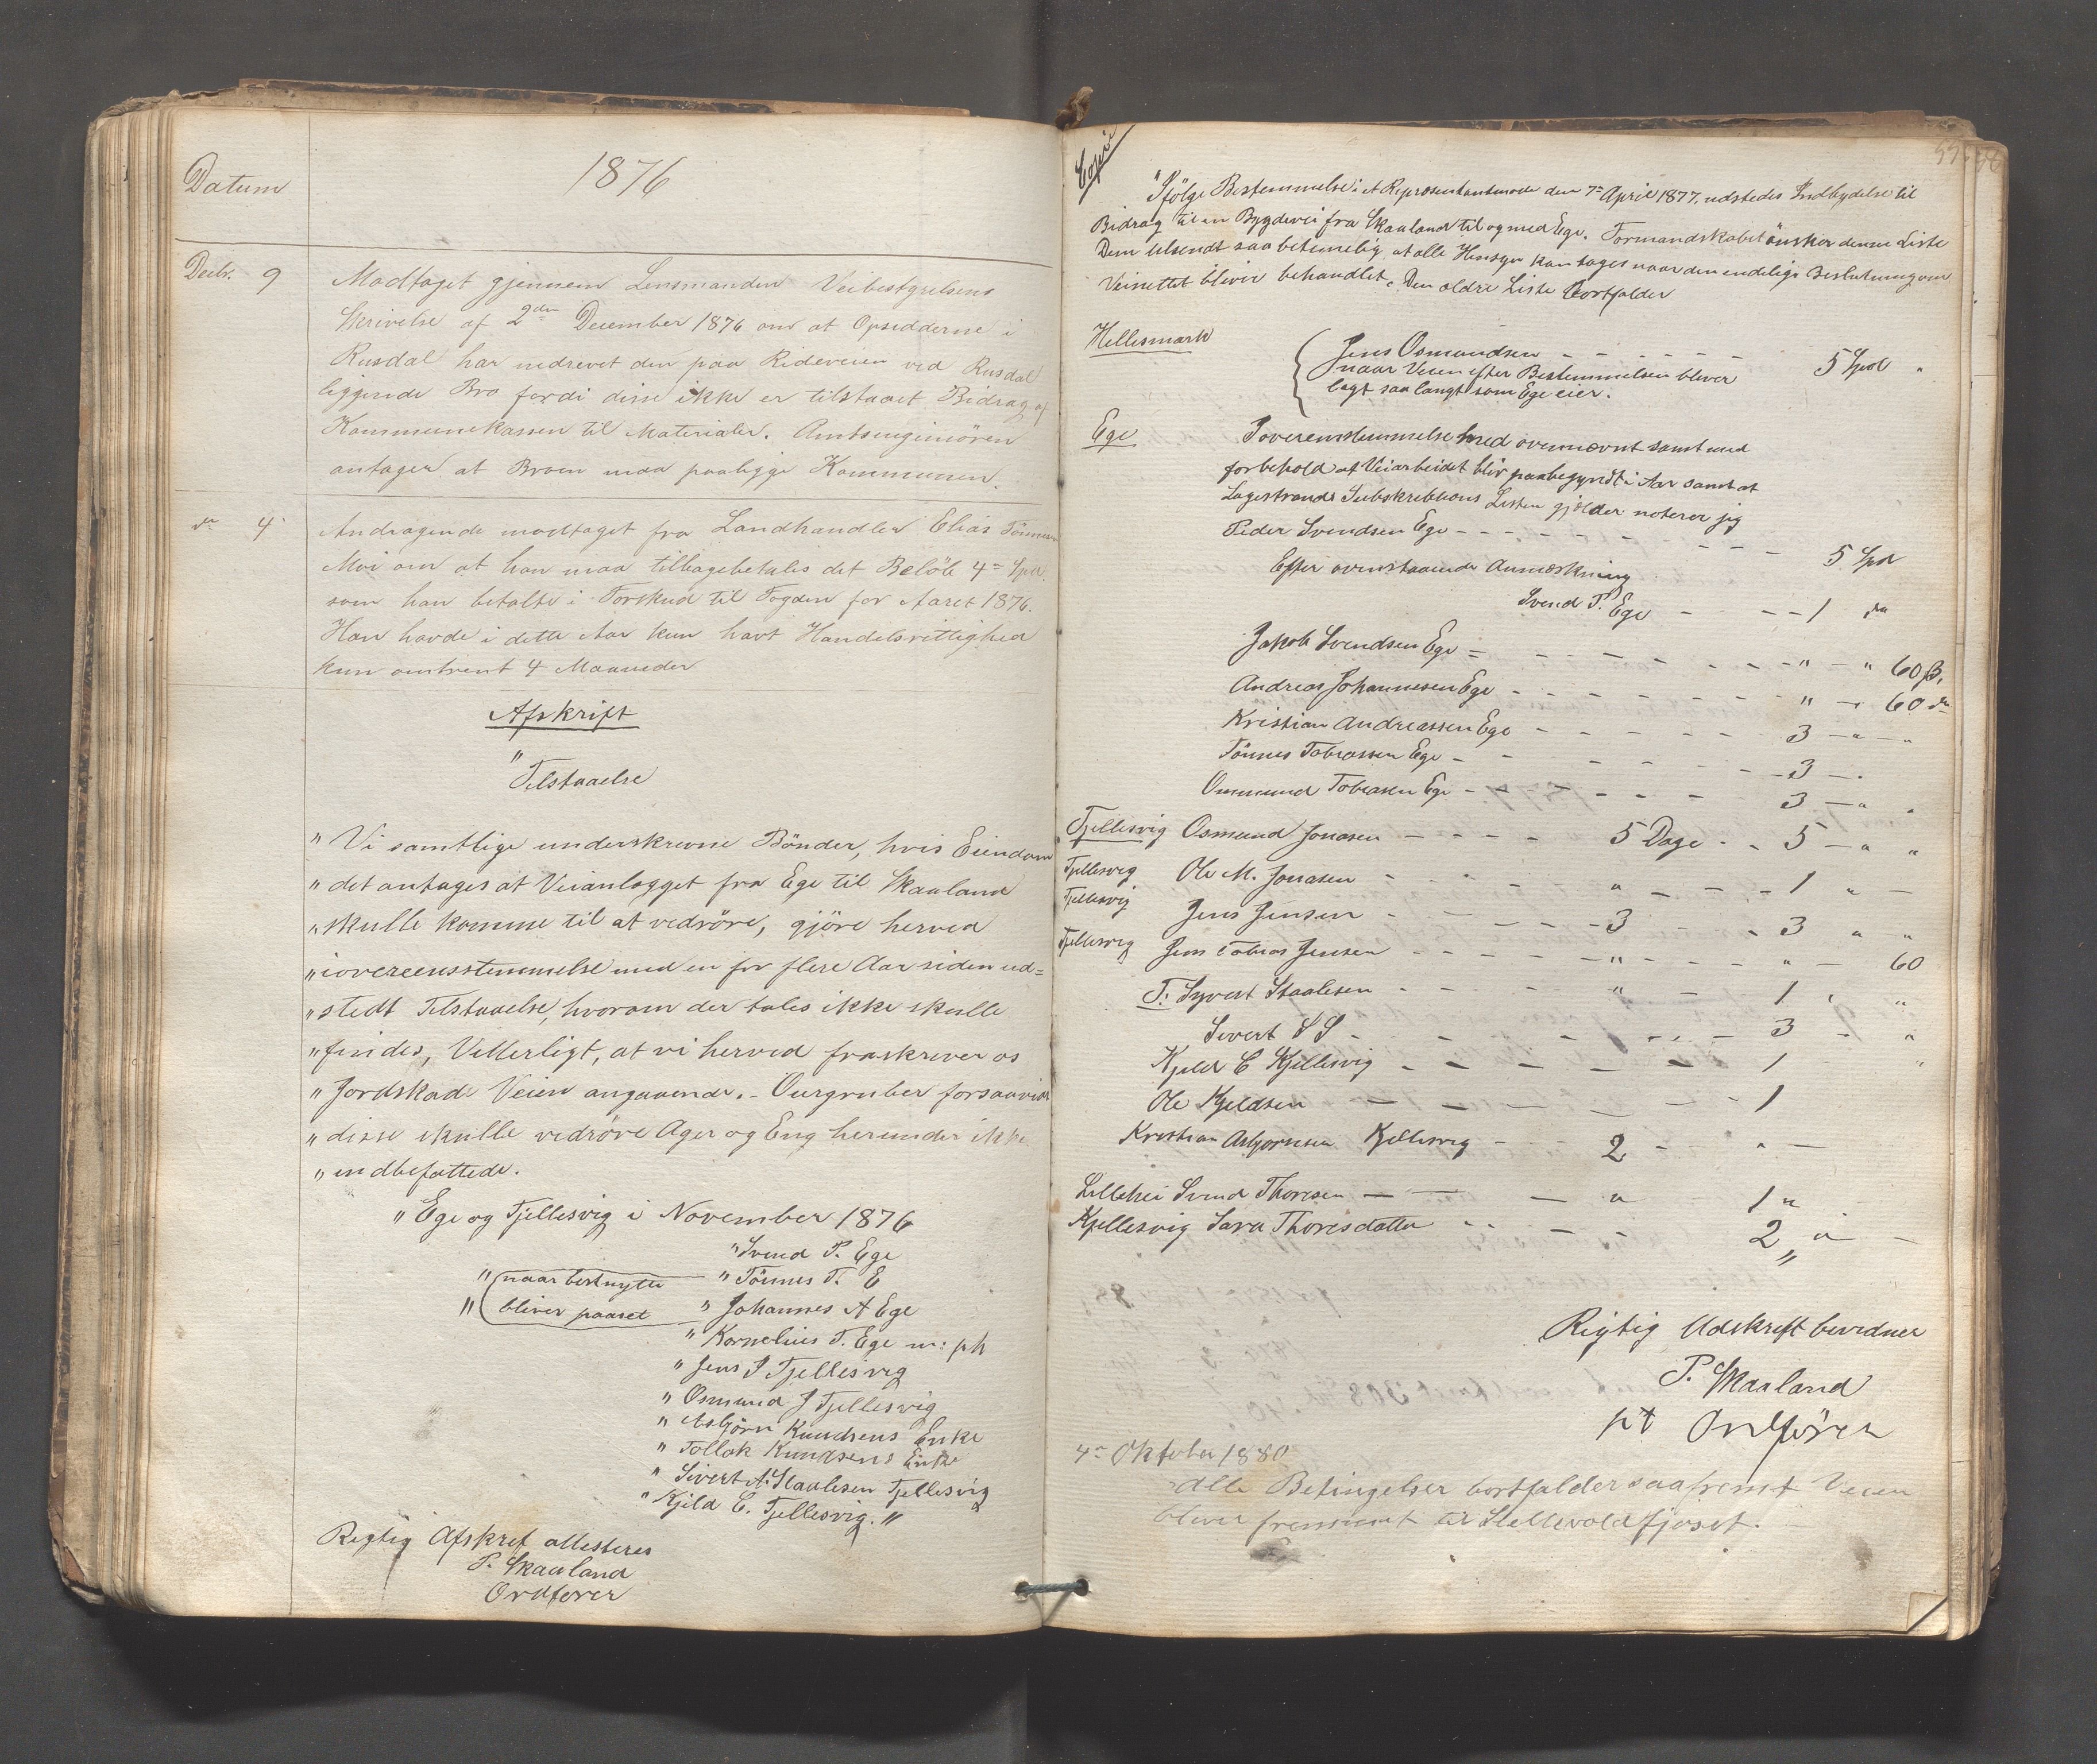 Datum
1876
Decbr. 9
Modtaget gjennem Lensmanden Veibestyrelsens
Skrivelse af 2den December 1876 om at Opsidderne i
Rusdal har nedrevet den paa Rideveien ved Rusdal
liggende Bro fordi disse ikke er tilstaaet Bidrag af
Kommunekassen til Materialer. Amtsingeniören
antager at Broen maa paaligge Kommunen.
do 4
Andragende modtaget fra Landhandler Elias Tönnesen
Moi om at han maa tilbagebetales det Belöb 4 Spd.
som han betalte i Forskud til Fogden for Aaret 1876.
Han havde i dette Aar kun havt Handelsrettighed
kun omtrent 4 Maaneder
Afskrift
"
Tilstaaelse
" Vi samtlige underskrevne Bönder, hvis Eiendom
" det antages at Veianlægget fra Ege til Skaaland
" skulle komme til at vedröre, gjöre herved
" iovereensstemmelse med en for flere Aar siden ud=
" stedt Tilstaaelse, hvorom der tales ikke skulle
" findes, Vitterligt, at vi herved fraskriver os
" Jordskade Veien angaaende. - Uurgruber forsaavidt
" disse skulle vedröre Ager og Eng herunder ikke
" indbefattede.
" Ege og Fjellesvig i November 1876
" Svend P. Ege
" naar benyttes " Tönnes T. E
" bliver paaset " Johannes A Ege
" Kornelius T. Ege m: p h
" Jens J Fjellesvig
" Osmund J Fjellesvig
" Asbjörn Knudsens Enke
" Tollak Knudsens Enke
" Sivert A. Staalesen Fjellesvig
" Kjeld C. Fjellesvig. "
Rigtig Afskrift attesteres
P. Skaaland
Ordförer
Copi
" Ifölge Bestemmelse i et Repræsentantmøde den 7 April 1877. udstedes Indbydelse til
Bidrag til en Bygdevei fra Skaaland til og med Ege. Formandskabet önsker denne Liste
Dem tilsendt saa betimelig at alle Hensyn kan tages naar den endelige Beslutning om
Veinettet bliver behandlet. Den ældre Liste bortfalder
Hellesmark
Jens Osmundsen - - - - - - 5 Spd "
naar Veien efter Bestemmelsen bliver
lagt saa langt som Ege eier.
Ege
I overensstemmelse med ovennævnt samt med
forbehold at Veiarbeidet blir paabegyndt i Aar samt at
Lagestrands Subskribtions Listen gjælder noterer jeg
Peder Svendsen Ege - - - - - - - - - 5 Spd
Efter ovenstaaende Anmærkning
Svend P. Ege - - - 1 do
Jakob Svendsen Ege - - - - - - - " - " 60 ß.
Andreas Johannesen Ege - - - - - - - " - " 60 do
Kristian Andreassen Ege - - - - - - 3 - " - "
Tönnes Tobiassen Ege - - - - - - 3 - "
Ommund Tobiasen Ege - - - - - - - 3 - " "
Fjellesvig Osmund Jonasen - - - - 5 Dage - - 5 - " "
Fjellesvig Ole M. Jonasen - - - - " - - - 1 " -
Fjellesvig Jens Jensen - - - - - 3 - - 3 " "
Fjellesvig Jens Tobias Jensen - - - - - " - - - " - 60
F. Syvert Staalesen - - - - " - - 1 " "
Sivert S S - - - - - - - - 3 - "
Kjeld C Kjellesvig - - - - - - 1 - "
Ole Kjeldsen - - - - - - 1
Kristian Asbjørnsen Kjellesvig - - - 2 - " -
Lillehei Svend Thoresen - - - " 1 "
Kjellesvig Sara Thoresdatter - - - - 2 " -
"
Rigtig Udskrift bevidner
P. Skaaland
pt Ordförer
4 Oktober 1880
Alle Betingelser bortfalder saafremt Veien
bliver fremsat til